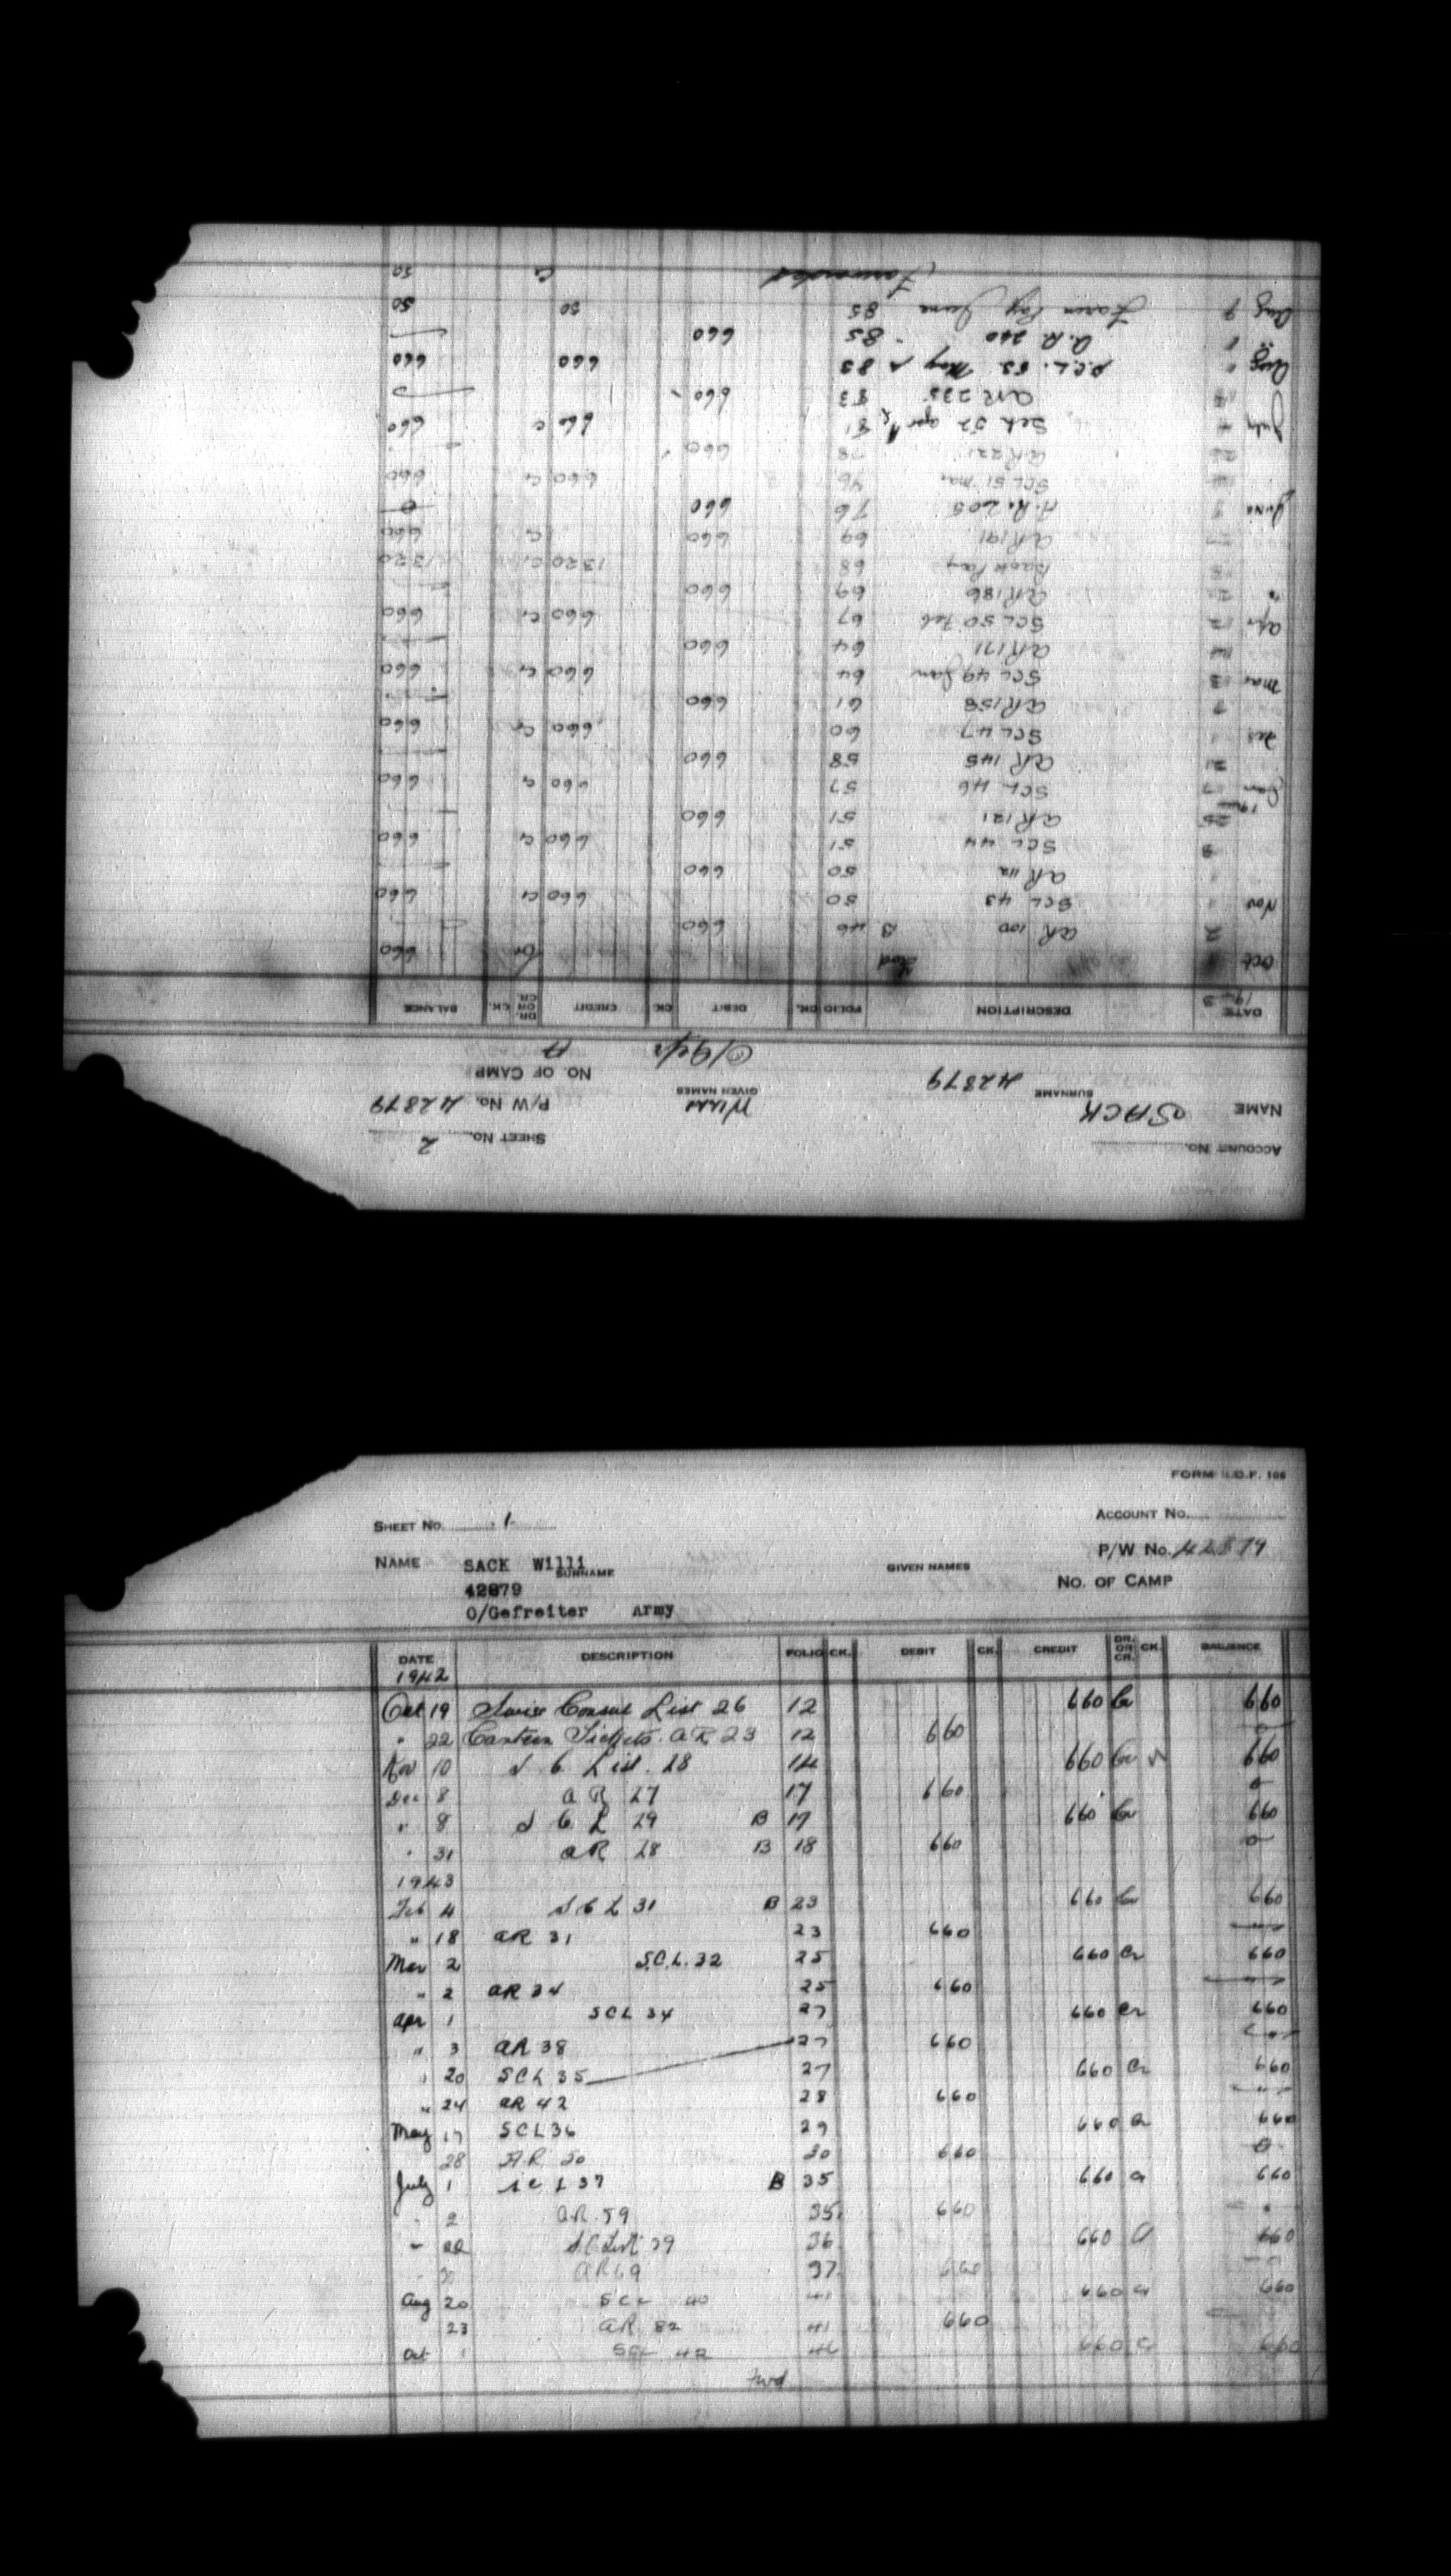 ACCOUNT No.
SHEET No. 2
NAME SACK Willi P/W No. 42879
SURNAME GIVEN NAMES
42879 O/Gefr NO. OF CAMP
A
DATE DESCRIPTION FOLIO CK. DEBIT CK. CREDIT DR. OR CR. CK. BALANCE
1943
Oct fwd 660
2 AR 100 B 46 660
Nov 1 SCL 43 50 660 Cr 660
1 AR 112 50 660
9 SCL 44 51 660 Cr 660
25 AR 121 51 660
Jan 17 SCL 46 57 660 Cr 660
21 AR 145 58 660
Feb 1 SCL 47 60 660 Cr 660
7 AR 158 61 660
Mar 13 SCL 49 Jan 64 660 Cr 660
AR 171 64 660
Apr 12 SCL 50 Feb 67 660 Cr 660
" AR 186 69 660
Back Pay 68 1320 Cr 1320
AR 191 69 660 Cr 660
June A.R. 205 76 660 0
SCL 51 Mar 76 660 Cr 660
AR 221 78 660
July SCL 52 Apr 81 660 660
AR 235 83 660
Aug S.C.L. 53 May 83 660 660
A.R. 240 85 660
Aug 9 Farm Pay June 85 50 50
Forwarded Cr 50
FORM I.O.F. 106
SHEET No. 1 ACCOUNT No.
P/W No. 42879
NAME SACK Willi
SURNAME GIVEN NAMES
42879 NO. OF CAMP
O/Gefreiter Army
DATE DESCRIPTION FOLIO CK. DEBIT CK. CREDIT DR. OR CR. CK. BALANCE
1942
Oct 19 Swiss Consul List 26 12 660 Cr 660
" 22 Canteen Tickets. AR 23 12 660 0
Nov 10 S C List. 28 14 660 Cr 660
Dec 8 AR 27 17 660 0
" 8 S C L 29 B 17 660 Cr 660
" 31 AR 28 B 18 660 0
1943
Feb 4 S C L 31 B 23 660 Cr 660
" 18 AR 31 23 660
Mar 2 S.C.L. 32 25 660 Cr 660
" 2 AR 34 25 660
Apr 1 SCL 34 27 660 Cr 660
" 3 AR 38 27 660
" 20 SCL 35 27 660 Cr 660
" 24 AR 42 28 660
May 17 SCL 36 29 660 Cr 660
28 A.R. 50 30 660 0
July 1 SCL 37 B 35 660 Cr 660
" 2 A.R. 59 35 660
" 22 S.C. List 39 36 660 Cr 660
AR 69 37 660
Aug 20 SCL 40 41 660 Cr 660
23 AR 82 41 660
Oct 1 SCL 42 46 660 Cr 660
fwd